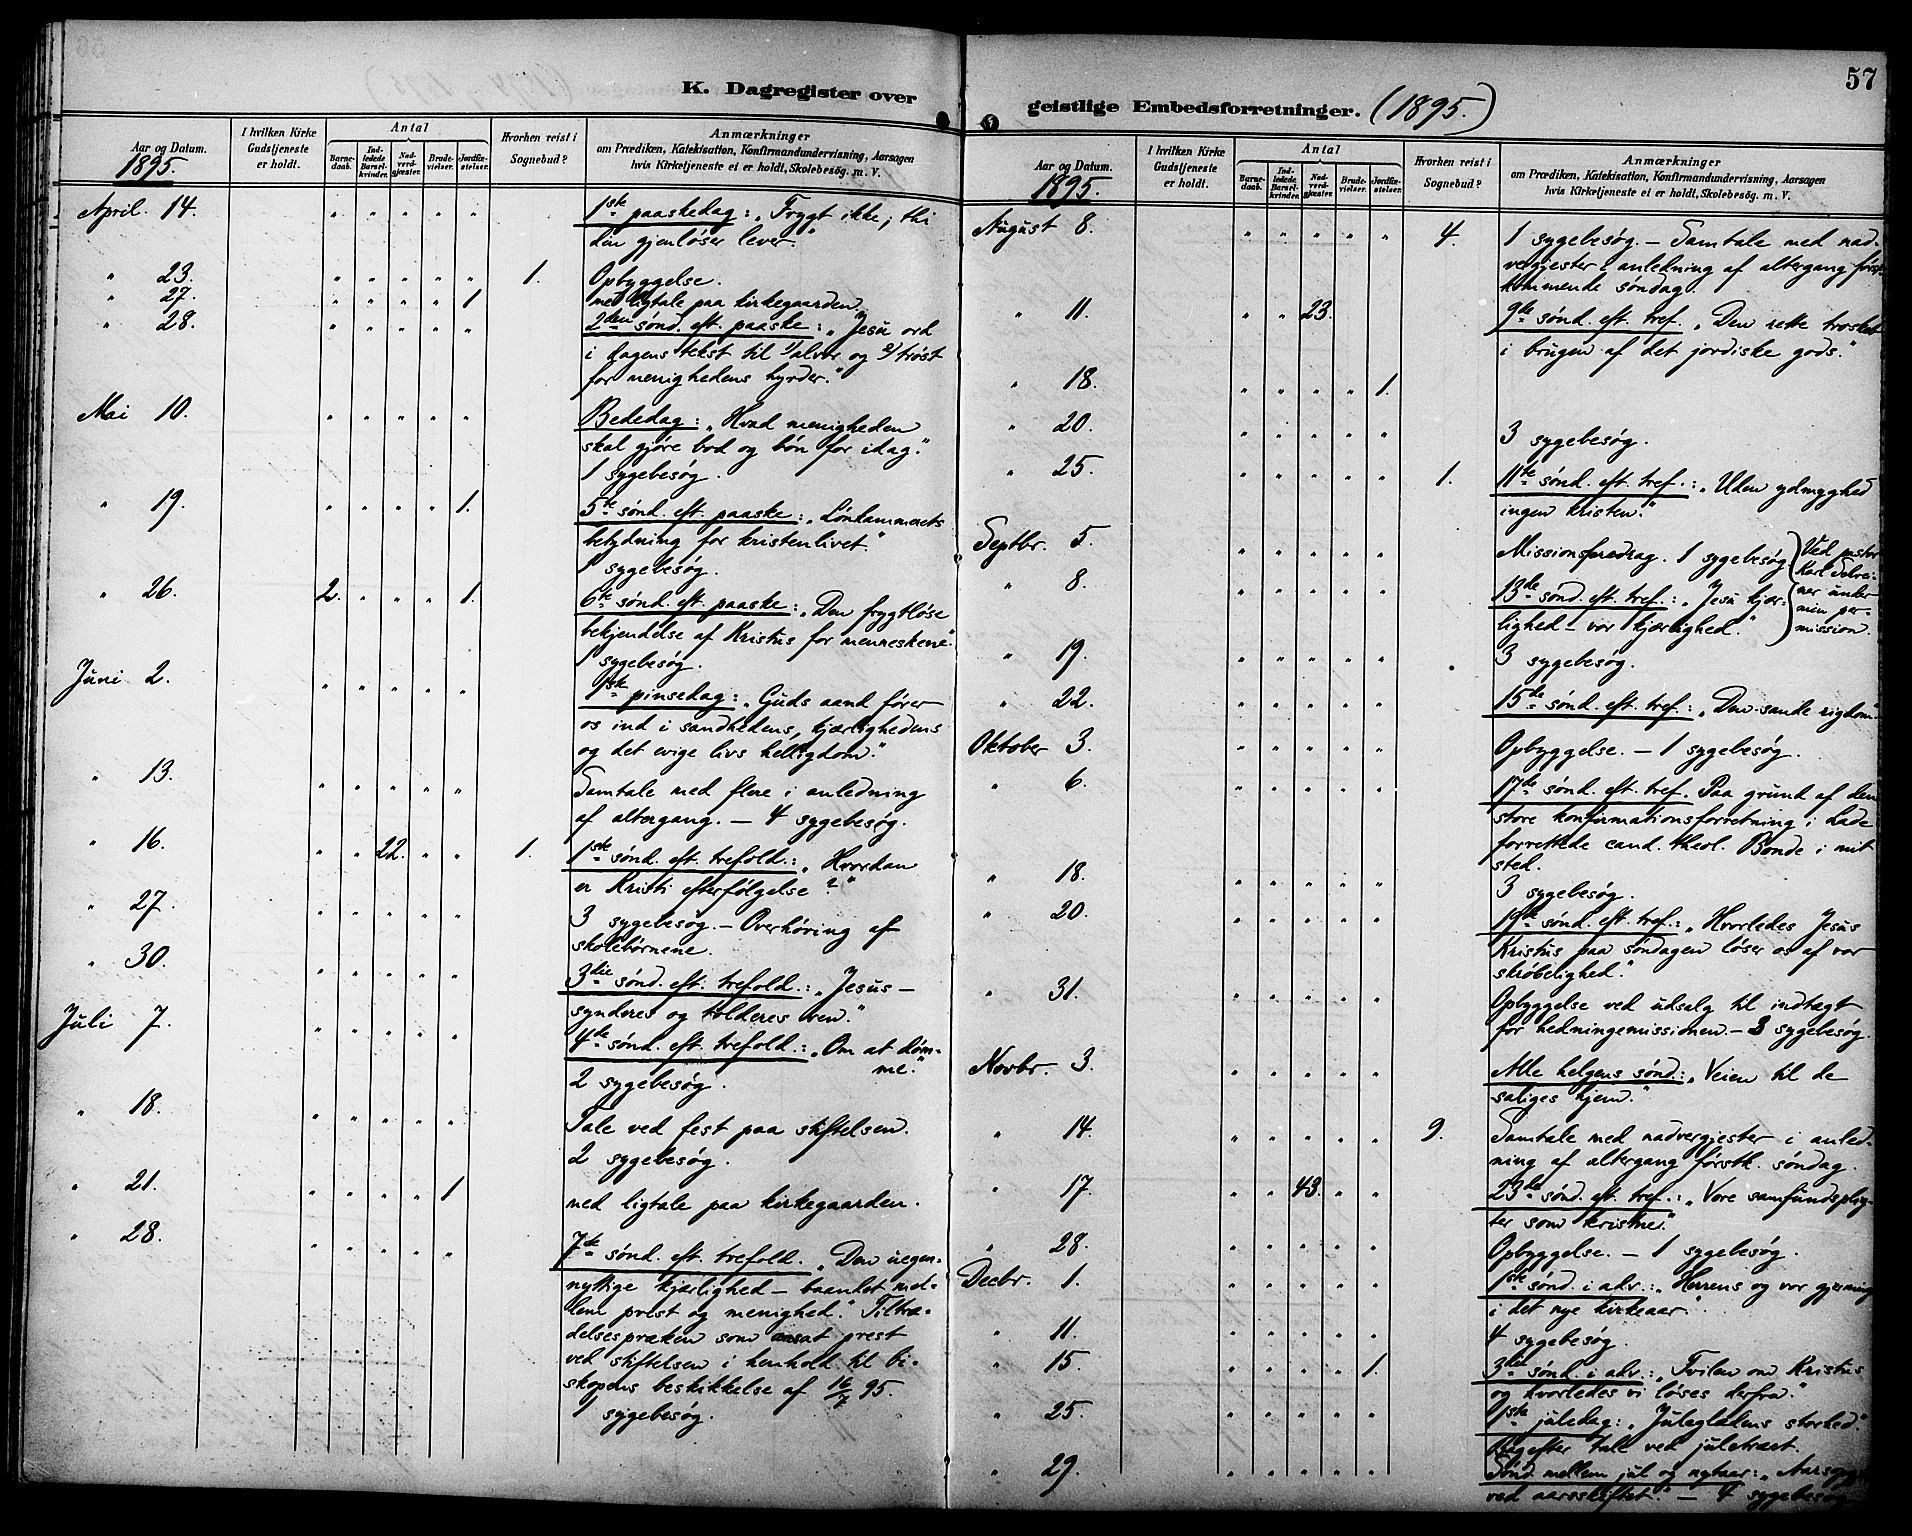 57
K. Dagregister over
geistlige Embedsforretninger. (1895.)
Aar og Datum.
1895.
I hvilken Kirke
Gudstjeneste
er holdt.
Antal
Barne-
daab.
Ind-
ledede
Barsel-
kvinder.
Nad-
verd-
gjæster.
Brude-
vielser.
Jordfæ-
stelser.
Hvorhen reist i
Sognebud?
Anmærkninger
om Prædiken, Katekisation, Konfirmandundervisning, Aarsagen
hvis Kirketjeneste ei er holdt, Skolebesøg. m. V.
April. 14. " " " " " 1ste paaskedag: „Frygt ikke, thi
din gjenløser lever."
" 23. " " " " " 1. Opbyggelse.
" 27. " " " " 1 med ligtale paa kirkegaarden.
" 28. " " " " " 2den sønd. eft. paaske: „Jesu ord
i dagens tekst til 1/ alvor og 2/ trøst
for menighedens hyrder."
Mai 10. " " " " " Bededag: „Hvad menigheden
skal gjøre bod og bøn for idag."
1 sygebesøg.
" 19. " " " " 1. 5te sønd. eft. paaske: „Lønkammerets
betydning for kristenlivet."
1 sygebesøg.
" 26. 2. " " " 1. 6te sønd. eft. paaske: „Den frygtløse
bekjendelse af Kristus for menneskene."
1 sygebesøg.
Juni 2. " " " " " 1ste pinsedag: „Guds aand fører
os ind i sandhedens, kjærlighedens
og det evige livs helligdom."
" 13. " " " " " Samtale med flere i anledning
af altergang. – 4 sygebesøg.
" 16. " " 22. " " 1. 1ste sønd. eft. trefold.: „Hvordan
er Kristi efterfølgelse?"
" 27. " " " " " 3 sygebesøg. – Overhøring af
skolebørnene.
" 30. " " " " " 3die sønd. eft. trefold.: „Jesus –
synderes og tolderes ven."
Juli 7. " " " " " 4de sønd. eft. trefold.: „Om at døm-
me."
2 sygebesøg.
" 18. " " " " " Tale ved fest paa stiftelsen.
2 sygebesøg.
" 21. " " " " 1 med ligtale paa kirkegaarden.
" 28. " " " " " 7de sønd. eft. trefold. „Den uegen-
nyttige kjærlighed – baandet mel-
lem prest og menighed." Tiltræ-
delsespræken som ansat prest
ved stiftelsen i henhold til bi-
skopens beskikkelse af 16/7 95.
1 sygebesøg.
Aar og Datum.
1895.
I hvilken Kirke
Gudstjeneste
er holdt.
Antal
Barne-
daab.
Ind-
ledede
Barsel-
kvinder.
Nad-
verd-
gjæster.
Brude-
vielser.
Jordfæ-
stelser.
Hvorhen reist i
Sognebud?
Anmærkninger
om Prædiken, Katekisation, Konfirmandundervisning, Aarsagen
hvis Kirketjeneste ei er holdt, Skolebesøg. m. V.
August 8. " " " " " 4. 1 sygebesøg. – Samtale med nad-
vergjester i anledning af altergang først-
kommende søndag.
" 11. " " 23. " " 9de sønd. eft. tref. „Den rette troskab
i brugen af det jordiske gods."
" 18. " " " " 1.
" 20. " " " " " 3 sygebesøg.
" 25. " " " " " 1. 11te sønd. eft. tref.: „Uden ydmyghed
ingen kristen."
Septbr. 5. " " " " " Missionsforedrag. 1 sygebesøg
" 8. " " " " " 13de sønd. eft. tref.: „Jesu kjær-
lighed – vor kjærlighed."
Ved pastor
Karl Schrei-
ner under
min per-
mission.
" 19. " " " " " 3 sygebesøg.
" 22. " " " " " 15de sønd. eft. tref.: „Den sande rigdom."
Oktober 3. " " " " " Opbyggelse. – 1 sygebesøg.
" 6. " " " " " 17de sønd. eft. tref. Paa grund af den
store konfirmationsforretning i Lade
forrettede cand. theol. Bonde i mit
sted.
" 18. " " " " " 3 sygebesøg.
" 20. " " " " " 19de sønd. eft. tref.: „Hvorledes Jesus
Kristus paa søndagen løser os af vor
skrøbelighed."
" 31. " " " " " Opbyggelse ved udsalg til indtægt
for hedningemissionen. – 3 sygebesøg.
Novbr. 3. " " " " " Alle helgens sønd.: „Veien til de
saliges hjem."
" 14. " " " " " 9. Samtale med nadvergjester i anled-
ning af altergang førstk. søndag.
" 17. " " 43. " " 23de sønd. eft. tref.: „Vore samfundsplig-
ter som kristne."
" 28. " " " " " Opbyggelse. – 1 sygebesøg.
Decbr. 1. " " " " " 1ste sønd. i adv.: „Herrens og vor gjerning
i det nye kirkeaar."
" 11. " " " " " 4 sygebesøg.
" 15. " " " " 1. 3die sønd. i adv.: „Tvilen om Kristus
og hvorledes vi løses derfra."
" 25. " " " " " 1ste juledag: „Juleglædens storhed."
Bagefter tale ved juletræet.
" 29. " " " " " Sønd. mellem jul og nytaar:
ved aarsskiftet." – 4 sygebesøg.